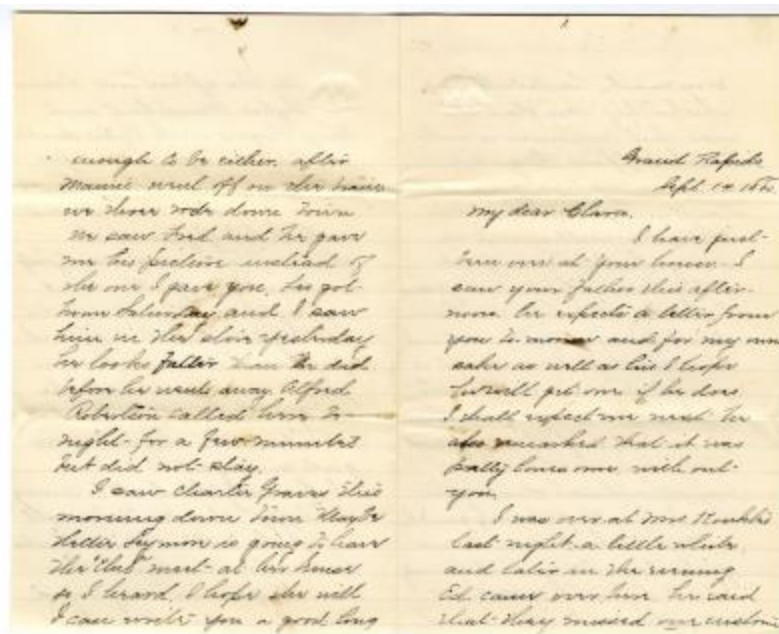 enough to be either. after
Mamie went off on the train
we three rode down town
we saw Fred and he gave
me his picture instead of
the one I gave you. He got
home Saturday and I saw
him in the store yesterday
he looks fatter than he did
before he went away. Alfred
Robertson called here to
night for a few minutes
but did not stay.
I saw Charlie Graves this
morning down town
Hettie Seymon is going to have
the "Club" meet at her house
so I heard. I hope she will
I can write you a good long
Grand Rapids
Sept. 14
My dear Clara.
I have just
been over at your house. I
saw your father this after-
noon. he expects a letter from
you to morrow and for my own
sake as well as his I hope
he will get one if he does
I shall expect one next. he
also remarked that it was
pretty lonesome with out
you.
I was over at Mrs
last night a little while
and later in the evening
Ed. came over here he said
that they missed our